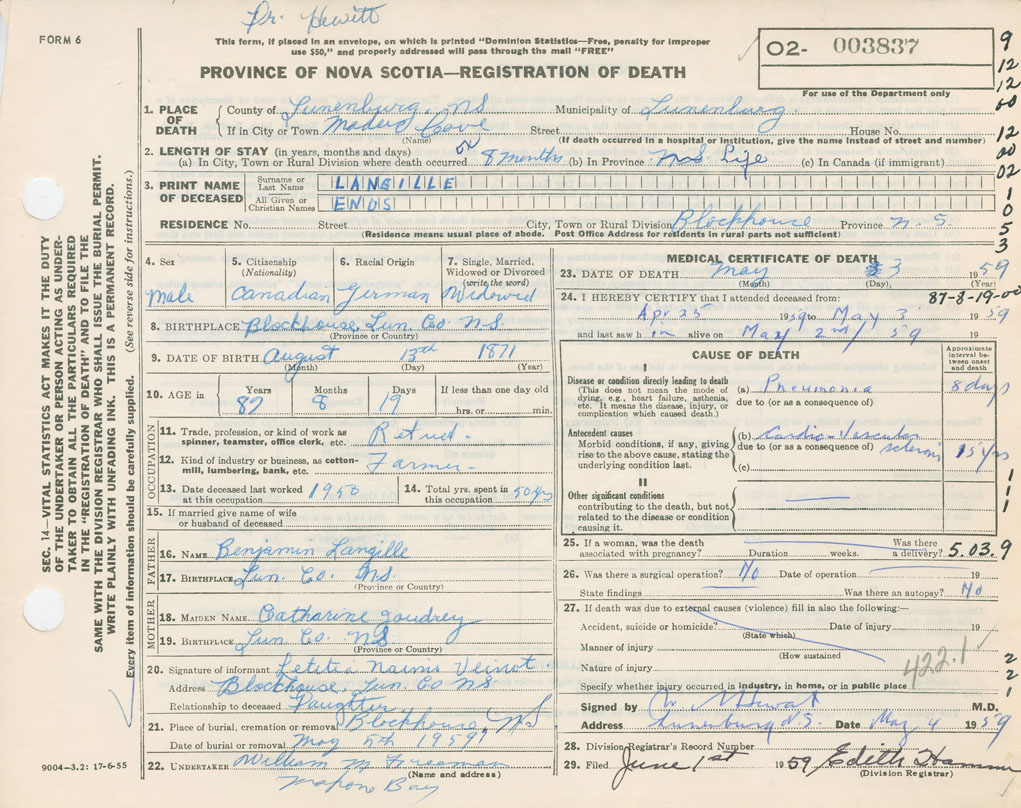 Dr. Hewitt
FORM 6
This form, if placed in an envelope, on which is printed "Dominion Statistics—Free, penalty for improper
use $50," and properly addressed will pass through the mail "FREE"
PROVINCE OF NOVA SCOTIA—REGISTRATION OF DEATH
O2- 003837
For use of the Department only
9
12
12
00
12
00
02
1
0
5
3
SEC. 14—VITAL STATISTICS ACT MAKES IT THE DUTY
OF THE UNDERTAKER OR PERSON ACTING AS UNDER-
TAKER TO OBTAIN ALL THE PARTICULARS REQUIRED
IN THE "REGISTRATION OF DEATH" AND TO FILE THE
SAME WITH THE DIVISION REGISTRAR WHO SHALL ISSUE THE BURIAL PERMIT.
WRITE PLAINLY WITH UNFADING INK. THIS IS A PERMANENT RECORD.
Every item of information should be carefully supplied. (See reverse side for instructions.)
1. PLACE OF DEATH
County of Lunenburg, N.S. Municipality of Lunenburg
If in City or Town Maders Cove Street House No.
(Name) (If death occurred in a hospital or institution, give the name instead of street and number)
2. LENGTH OF STAY (in years, months and days)
(a) In City, Town or Rural Division where death occurred 8 months (b) In Province Life (c) In Canada (if immigrant)
3. PRINT NAME OF DECEASED
Surname or Last Name LANGILLE
All Given or Christian Names ENOS
RESIDENCE No. Street City, Town or Rural Division Blockhouse Province N.S.
(Residence means usual place of abode. Post Office Address for residents in rural parts not sufficient)
4. Sex 5. Citizenship (Nationality) 6. Racial Origin 7. Single, Married, Widowed or Divorced (write the word)
Male Canadian German Widowed
8. BIRTHPLACE Blockhouse, Lun. Co. N.S.
(Province or Country)
9. DATE OF BIRTH August 13th 1871
(Month) (Day) (Year)
10. AGE in Years Months Days If less than one day old
87 8 19 hrs. or min.
OCCUPATION
11. Trade, profession, or kind of work as
spinner, teamster, office clerk, etc. Retired.
12. Kind of industry or business, as cotton-
mill, lumbering, bank, etc. Farmer
13. Date deceased last worked
at this occupation 1950
14. Total yrs. spent in
this occupation 50 yrs
15. If married give name of wife
or husband of deceased
FATHER
16. NAME Benjamin Langille
17. BIRTHPLACE Lun. Co. N.S.
(Province or Country)
MOTHER
18. MAIDEN NAME Catharine Joudrey
19. BIRTHPLACE Lun Co. N.S.
(Province or Country)
20. Signature of informant Letitia Veinot
Address Blockhouse, Lun. Co N.S
Relationship to deceased Daughter
21. Place of burial, cremation or removal Blockhouse, N.S.
Date of burial or removal May 5th 1959
22. UNDERTAKER William M Freeman
(Name and address)
Mahone Bay
9004-3.2: 17-6-55
MEDICAL CERTIFICATE OF DEATH
23. DATE OF DEATH May 3 1959
(Month) (Day), (Year)
24. I HEREBY CERTIFY that I attended deceased from: 87-8-19-00
Apr 25 1959 to May 3 1959
and last saw him alive on May 2nd 59
CAUSE OF DEATH
Approximate interval between onset and death
I
Disease or condition directly leading to death
(This does not mean the mode of
dying, e.g., heart failure, asthenia,
etc. It means the disease, injury, or
complication which caused death.)
(a) Pneumonia 8 days
due to (or as a consequence of)
Antecedent causes
Morbid conditions, if any, giving
rise to the above cause, stating the
underlying condition last.
(b) Cardio-Vascular
due to (or as a consequence of) sclerosis 15 yrs
(c)
II
Other significant conditions
contributing to the death, but not
related to the disease or condition
causing it.
1
1
1
25. If a woman, was the death Was there
associated with pregnancy? Duration weeks. a delivery? 5.03.9
26. Was there a surgical operation? No Date of operation 19
State findings Was there an autopsy? No
27. If death was due to external causes (violence) fill in also the following:—
Accident, suicide or homicide? Date of injury 19
(State which)
Manner of injury
(How sustained
Nature of injury 422.1
Specify whether injury occurred in industry, in home, or in public place
2
2
1
Signed by M.D.
Address Lunenburg N.S. Date May 4 1959
28. Division Registrar's Record Number
29. Filed June 1st 1959 Edith
(Division Registrar)